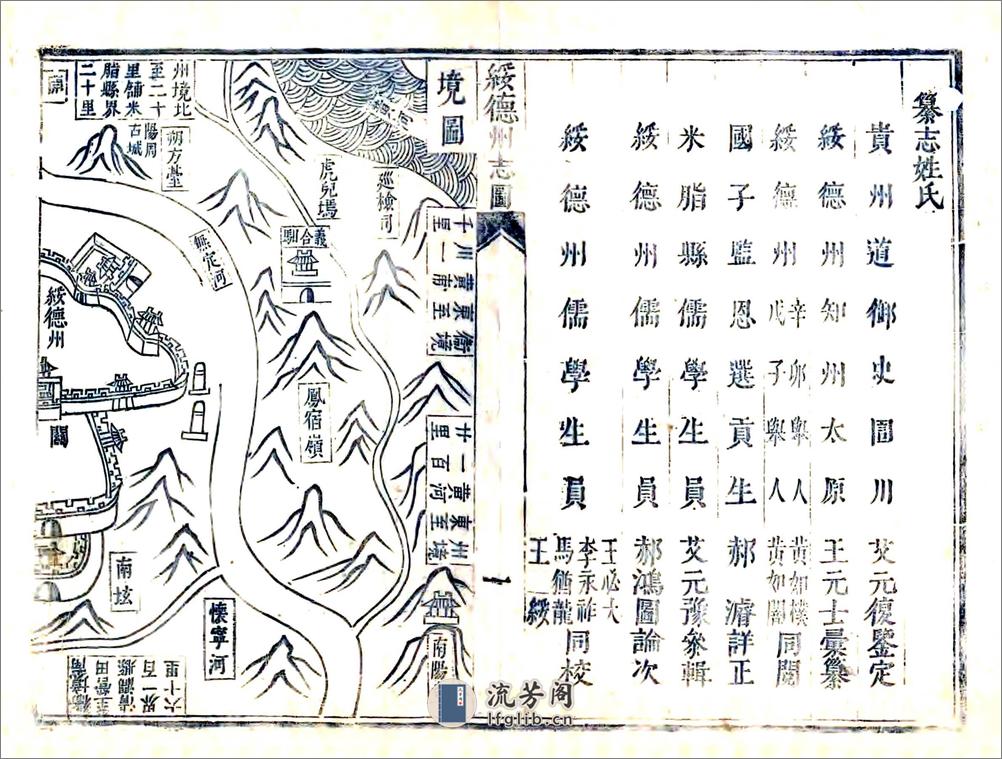 纂志姓氏
貴州道御史圁川艾元復鑒定
綏德州知州太原王元士彙纂
綏德州辛卯舉人黃如樸
戊子舉人黃如閣同閱
國子監恩選貢生郝濬詳正
米脂縣儒學生員艾元豫叅輯
綏德州儒學生員郝鴻圖論次
綏德州儒學生員王必大
李永祚
馬猶龍同校
王綏
綏德州志圖
一
境圖
衞境東至黃甫川一千里
州境東至黃河一百廿里
巡檢司
虎兒墕
義合驛
鳳宿嶺
南陽
無定河
州境北至二十里鋪米脂縣界二十里
朔方臺
陽周古城
綏德州
關
南坬
懷寧河
清澗縣界一百六十里
流芳阁
lfglib.cn